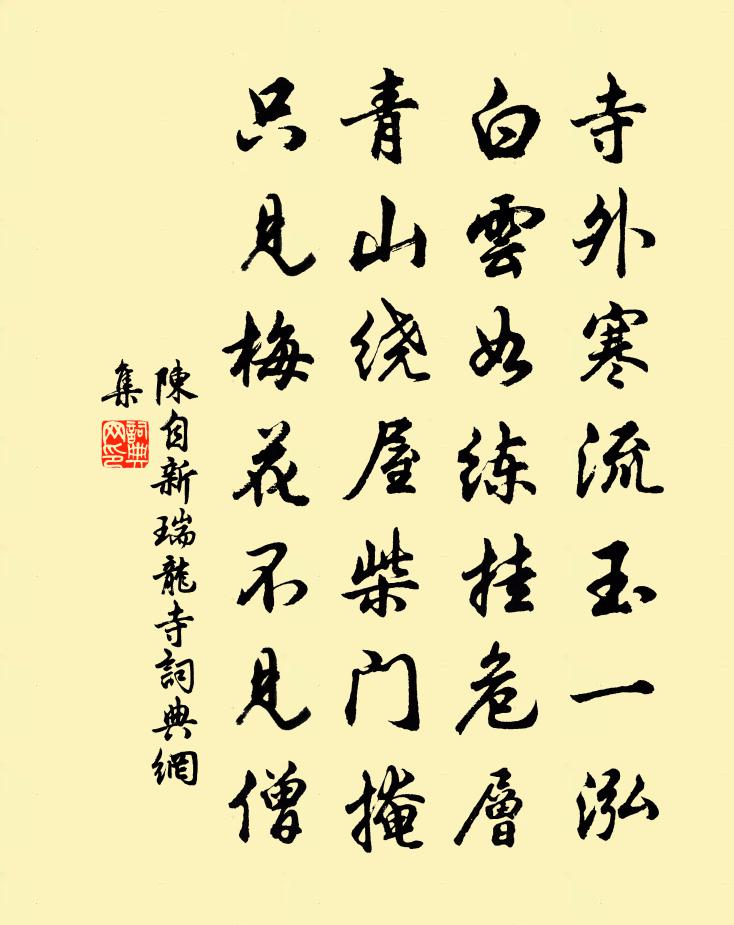 寺外寒流玉一泓
白雲如练挂危層
青山绕屋柴门掩
只見梅花不見僧
陳自新瑞龍寺詞典網
集
詞典
网印